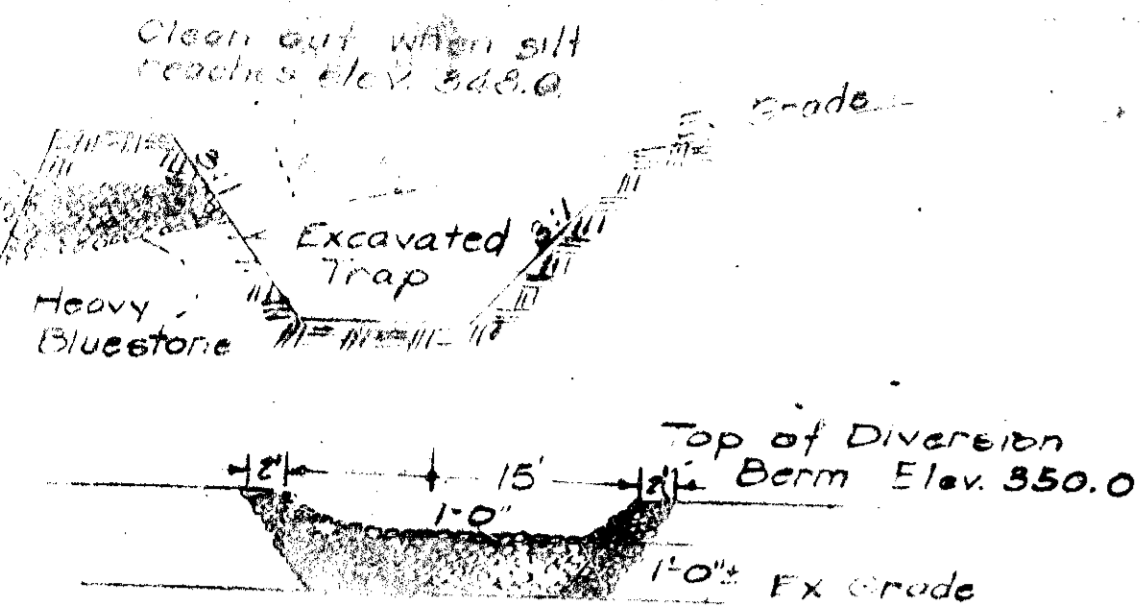 Clean out when silt
reaches elev. 348.0
Grade
3:1
Excavated
Trap
Heavy
Bluestone
Top of Diversion
Berm Elev. 350.0
2'
15'
2'
1'-0"
1'-0"±
Ex Grade